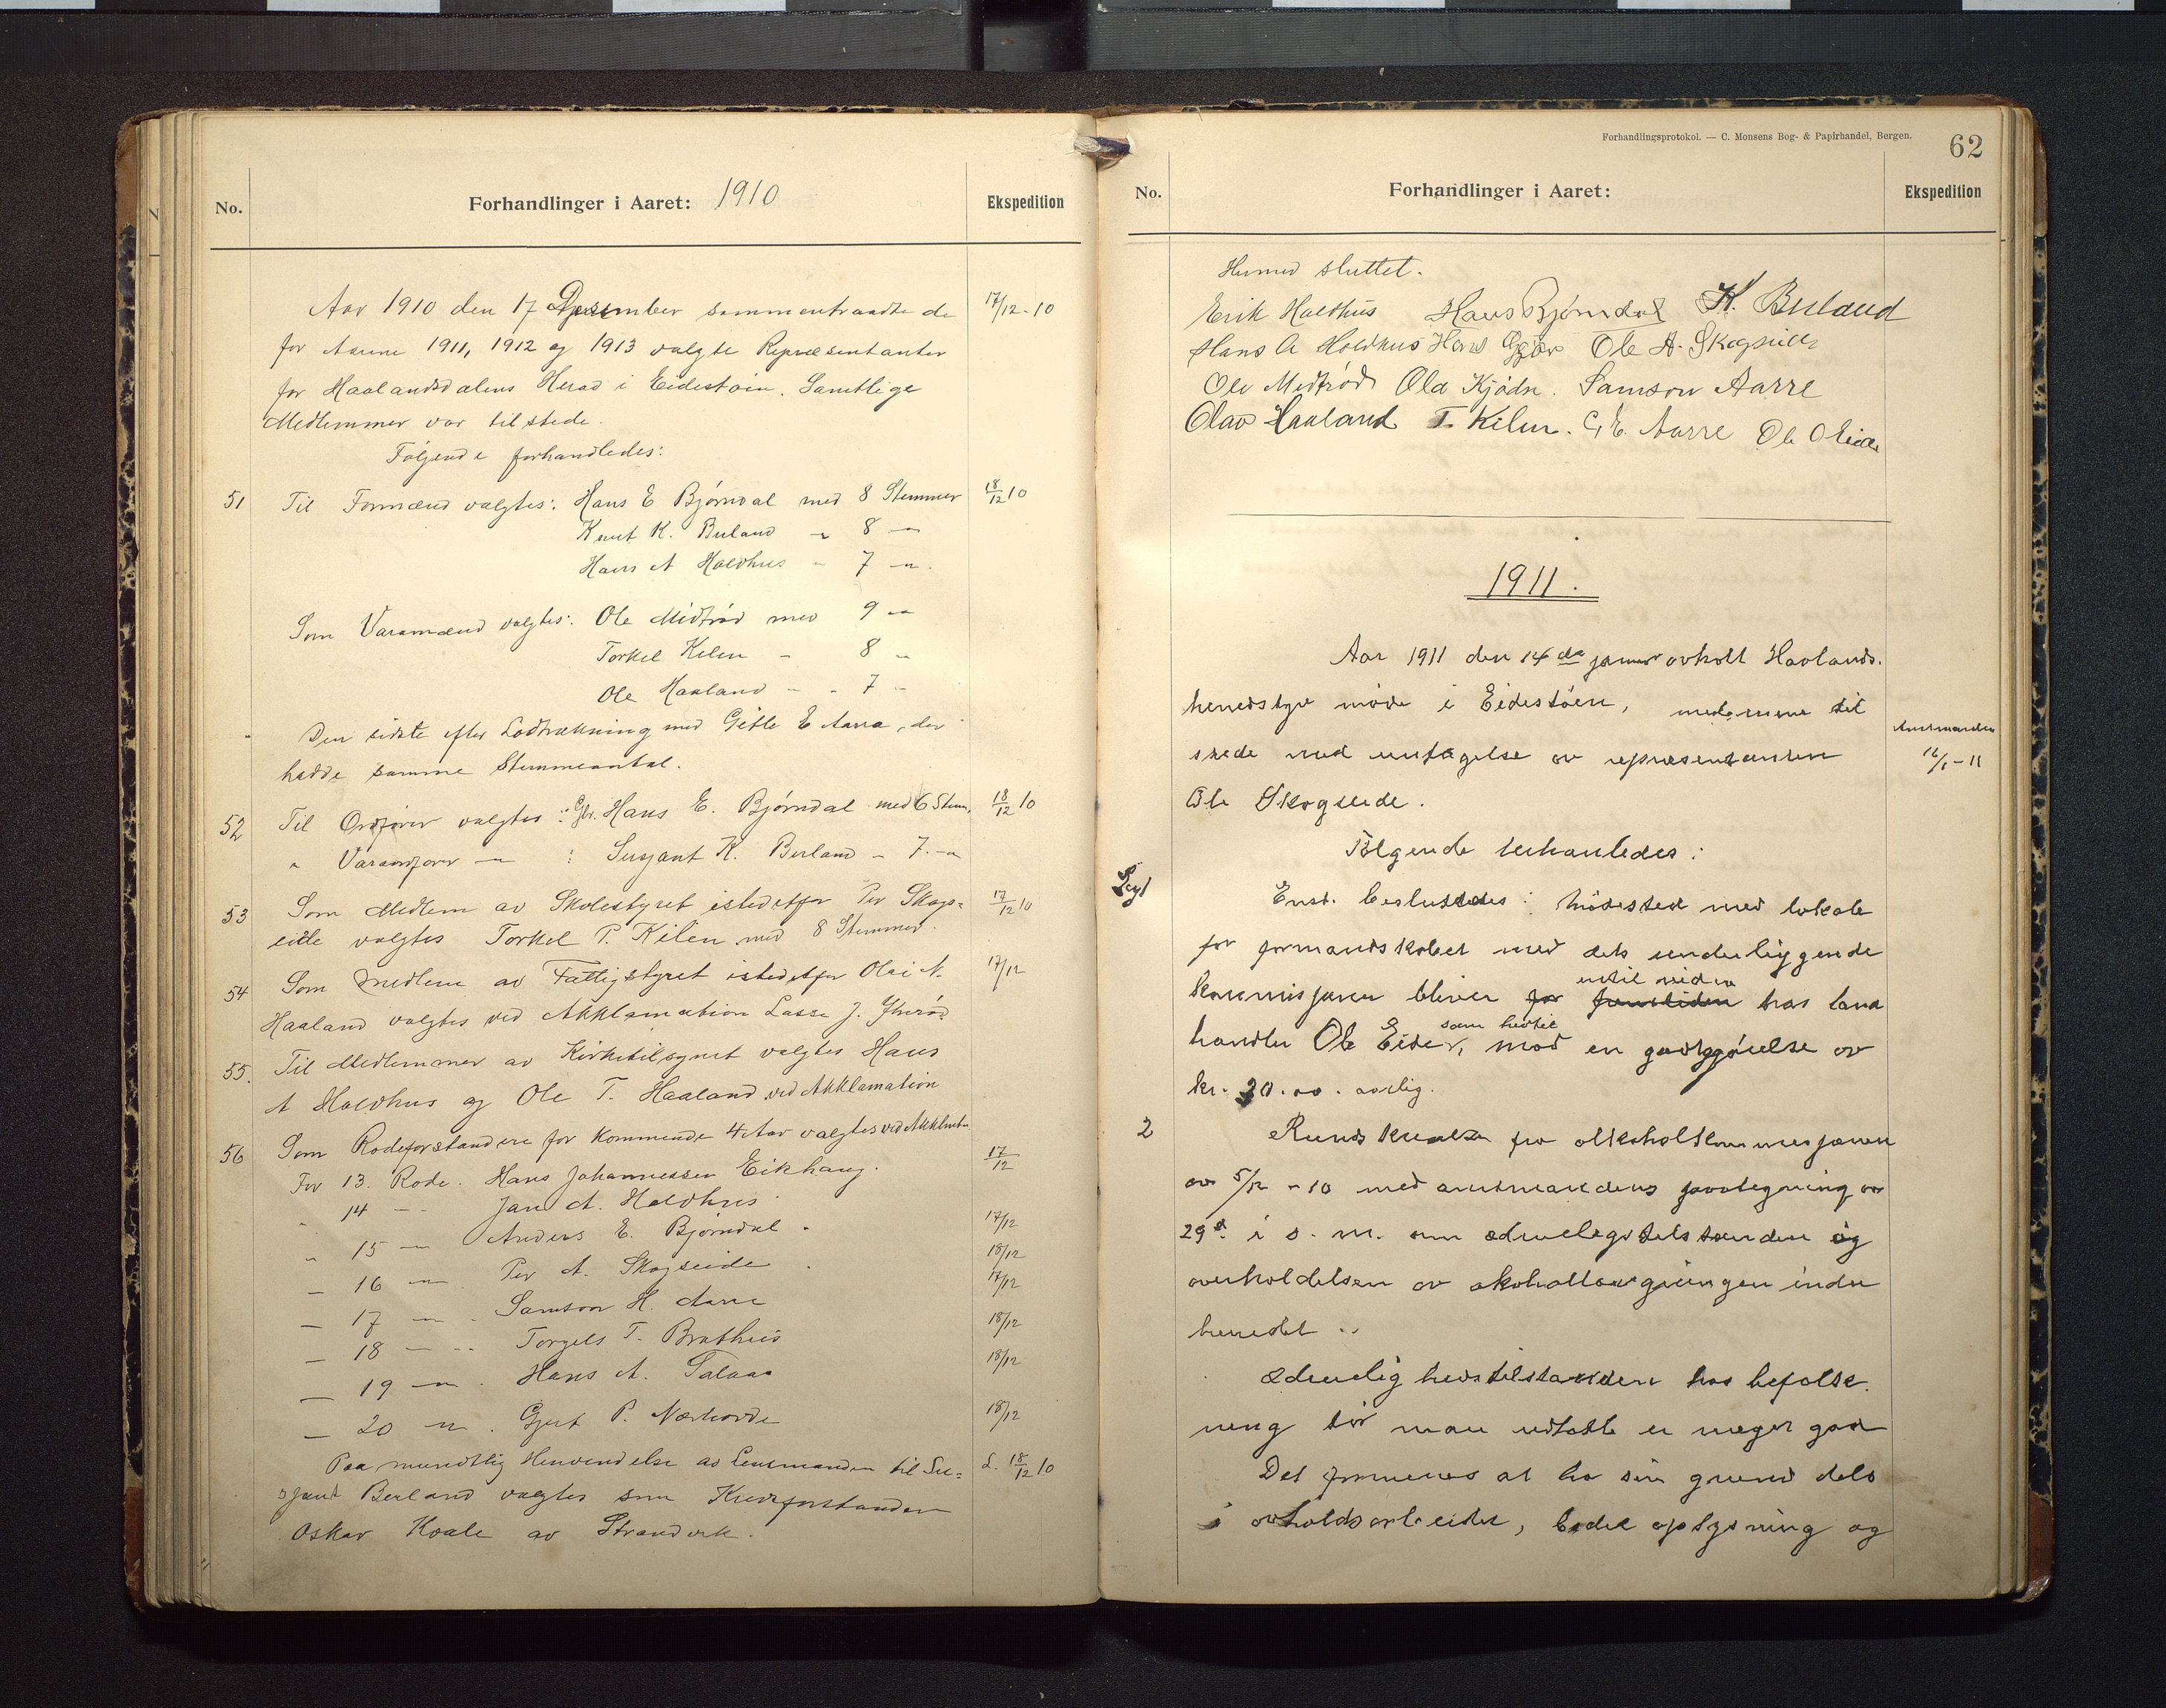 No. Forhandlinger i Aaret: 1910 Ekspedition
Aar 1910 den 17 Desember sammentraadte de 17/12-10
for Aarene 1911, 1912 og 1913 valgte Repræsentanter
for Haalandsdalens Herad i Eidestøin. Samtlige
Medlemmer var tilstede.
Følgende forhandledes:
51 Til Formænd valgtes: Hans E Bjørndal med 8 Stemmer 18/12 10
Knut K. Berland " 8 "
Hans A Holdhus " 7 "
Som Varamænd valgtes: Ole Midtrød med 9 "
Torkel Kilen - 8 "
Ole Haaland - " 7 "
Den sidste efter Lodtrækning med Gitle E Aarra, der
hadde samme Stemmeantal.
52 Til Ordfører valgtes: Hans E. Bjørndal med 6 Stem. 18/12 10
" Varaordfører — " : Sersjant K. Berland - 7 - "
53 Som Medlem av Skolestyret istedetfor Per Skogs= 17/12 10
eide valgtes Torkel P. Kilen med 8 Stemmer.
54 Som medlem av Fattigstyret istedetfor Olai N. 17/12
Haaland valgtes ved Akklamation Lasse J.
55. Til Medlemmer av Kirketilsynet valgtes Hans
A Holdhus og Ole T. Haaland ved Akklamation
56 Som Rodeforstandere for kommende 4 Aar valgtes ved Akklmtn.
For 13. Rode. Hans Johannessen Eikhaug. 17/12
" 14 — Jan A. Holdhus
" 15 — " Anders E. Bjørndal. 17/12
— 16 — " Per A. Skogseide 18/12
— 17 — " Samson H. Aarre 17/12
— 18 — " Torgils T. Brathus 18/12
— 19 — " Hans A. 18/12
— 20 — " Gjert P. 18/12
Paa mundtlig Henvendelse av Lensmanden til Ser= L. 18/12 10
sjant Berland valgtes som Kredsforstander
Oskar Koale av Strandvik.
Forhandlingsprotokol. — C. Monsens Bog- & Papirhandel, Bergen. 62
No. Forhandlinger i Aaret: Ekspedition
Hermed sluttet.
Erik Holdhus Hans Bjørndal K. Berland
Hans A Holdhus Hans Gjøn Ole A. Skogseide
Ole Midtrød Ola Samson Aarre
Olav Haaland T. Kilen. G. E. Aarre Ole O Eide
1911.
Aar 1911 den 14de januar avholt Haalands.
heredstyr møde i Eidestøen, medlemmene til
stede med untagelse av repræsentanten Amtmanden 16/1-11
Ole Skogseide.
Følgende behanledes:
1 Enst. besluttedes: Mødested med lokale
for formandskabet med dets underliggende
kommisjoner bliver for fremtiden intil videre hos land
handler Ole Eide, som hidtil mod en godtgjørelse av
kr. 20.00. aarlig.
2 Rundskrivelse fra alkoholkommisjonen
av 5/12 - 10 med amtmandens paategning av
29d. i s. m. om ædruelighetstilstanden og
overholdelsen av alkohollovgivningen inden
heredet.
Ædruelighedstilstanden hos befolk.
ning tør man udtale er meget god
Det formenes at ha sin grund dels
i avholdsarbeidet, bedre oplysning og